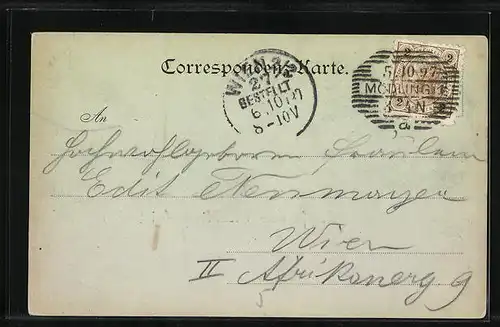 Correspondenz-Karte.
WIEN 2/5
2·7
BESTELLT
6·10 97
8-10V
2 2
5·10·97
MÖDLING
N
a
An
Hochwohlgeboren Fräulein
Edit Neumayer
Wien
II Afrikanerg 9
5